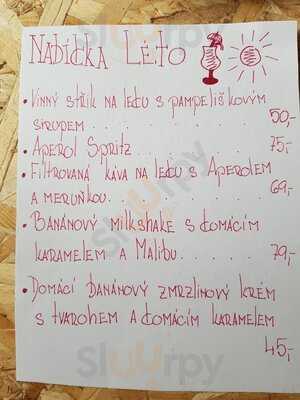 NABÍDKA LÉTO
• VINNÝ STŘIK NA LEDU S PAMPELIŠKOVÝM
SIRUPEM . . . . . . . . . 50,-
• APEROL SPRITZ . . . . . . . 75,-
• FILTROVANÁ KÁVA NA LEDU S APEROLEM
A MERUŇKOU. . . . . . . . 69,-
• BANÁNOVÝ MILKSHAKE S DOMÁCÍM
KARAMELEM A MALIBU. . . . . . 79,-
• DOMÁCÍ BANÁNOVÝ ZMRZLINOVÝ KRÉM
S TVAROHEM A DOMÁCÍM KARAMELEM
45,-
Sluurpy
Sluurpy
Sluurpy